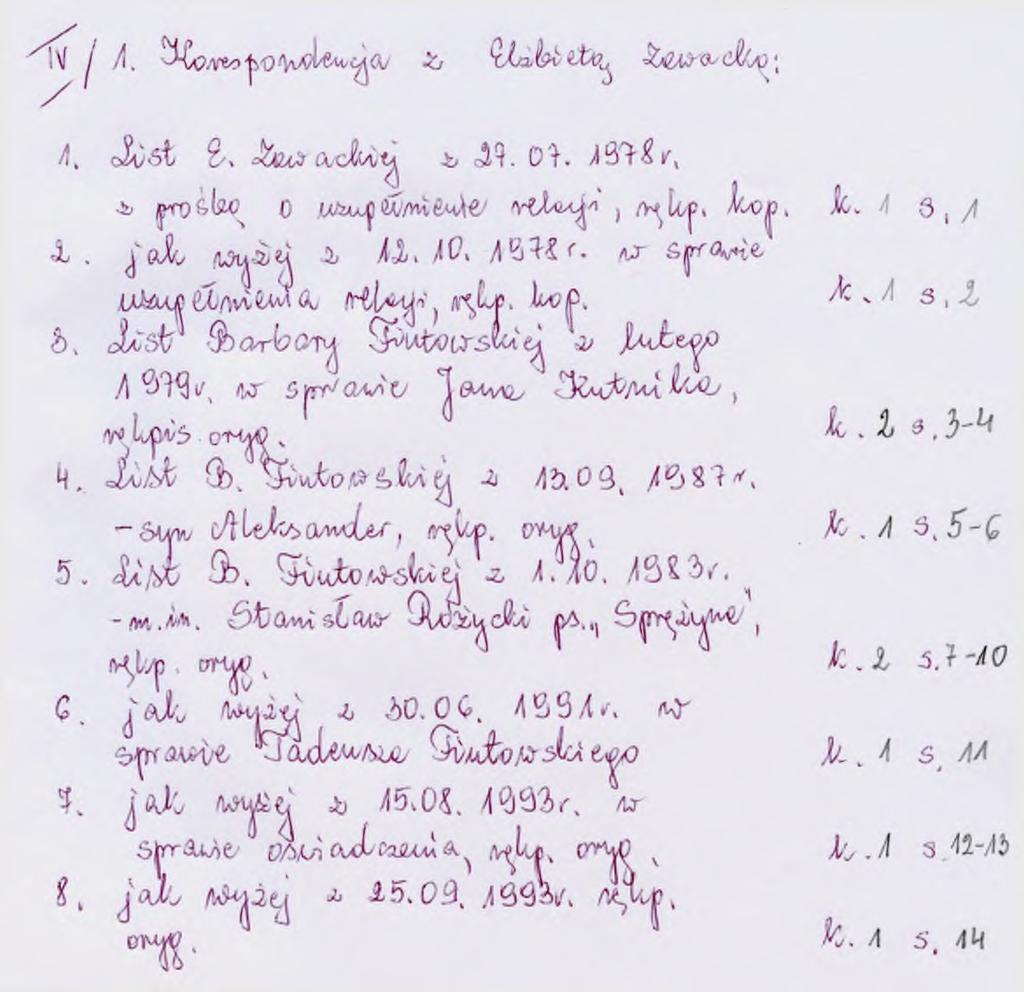 IV/1. Korespondencja z Elżbietą Zawacką:
1. List E. Zawackiej z 27.07.1978r.
z prośbą o uzupełnienie relacji, rękp. kop. k. 1 s. 1
2. jak wyżej z 12.10.1978r. w sprawie
uzupełnienia relacji, rękp. kop. k. 1 s. 2
3. List Barbary Fiutowskiej z lutego
1979r. w sprawie Jana Kutnika,
rękpis. oryg. k. 2 s. 3-4
4. List B. Fiutowskiej z 13.09.1987r.
-syn Aleksander, rękp. oryg. k. 1 s. 5-6
5. List B. Fiutowskiej z 1.10.1983r.
-m.in. Stanisław Różycki ps. „Sprężyna",
rękp. oryg. k. 2 s. 7-10
6. jak wyżej z 30.06.1991r. w
sprawie Tadeusza Fiutowskiego k. 1 s. 11
7. jak wyżej z 15.08.1993r. w
sprawie oświadczenia, rękp. oryg. k. 1 s. 12-13
8. jak wyżej z 25.09.1993r. rękp.
oryg. k. 1 s. 14